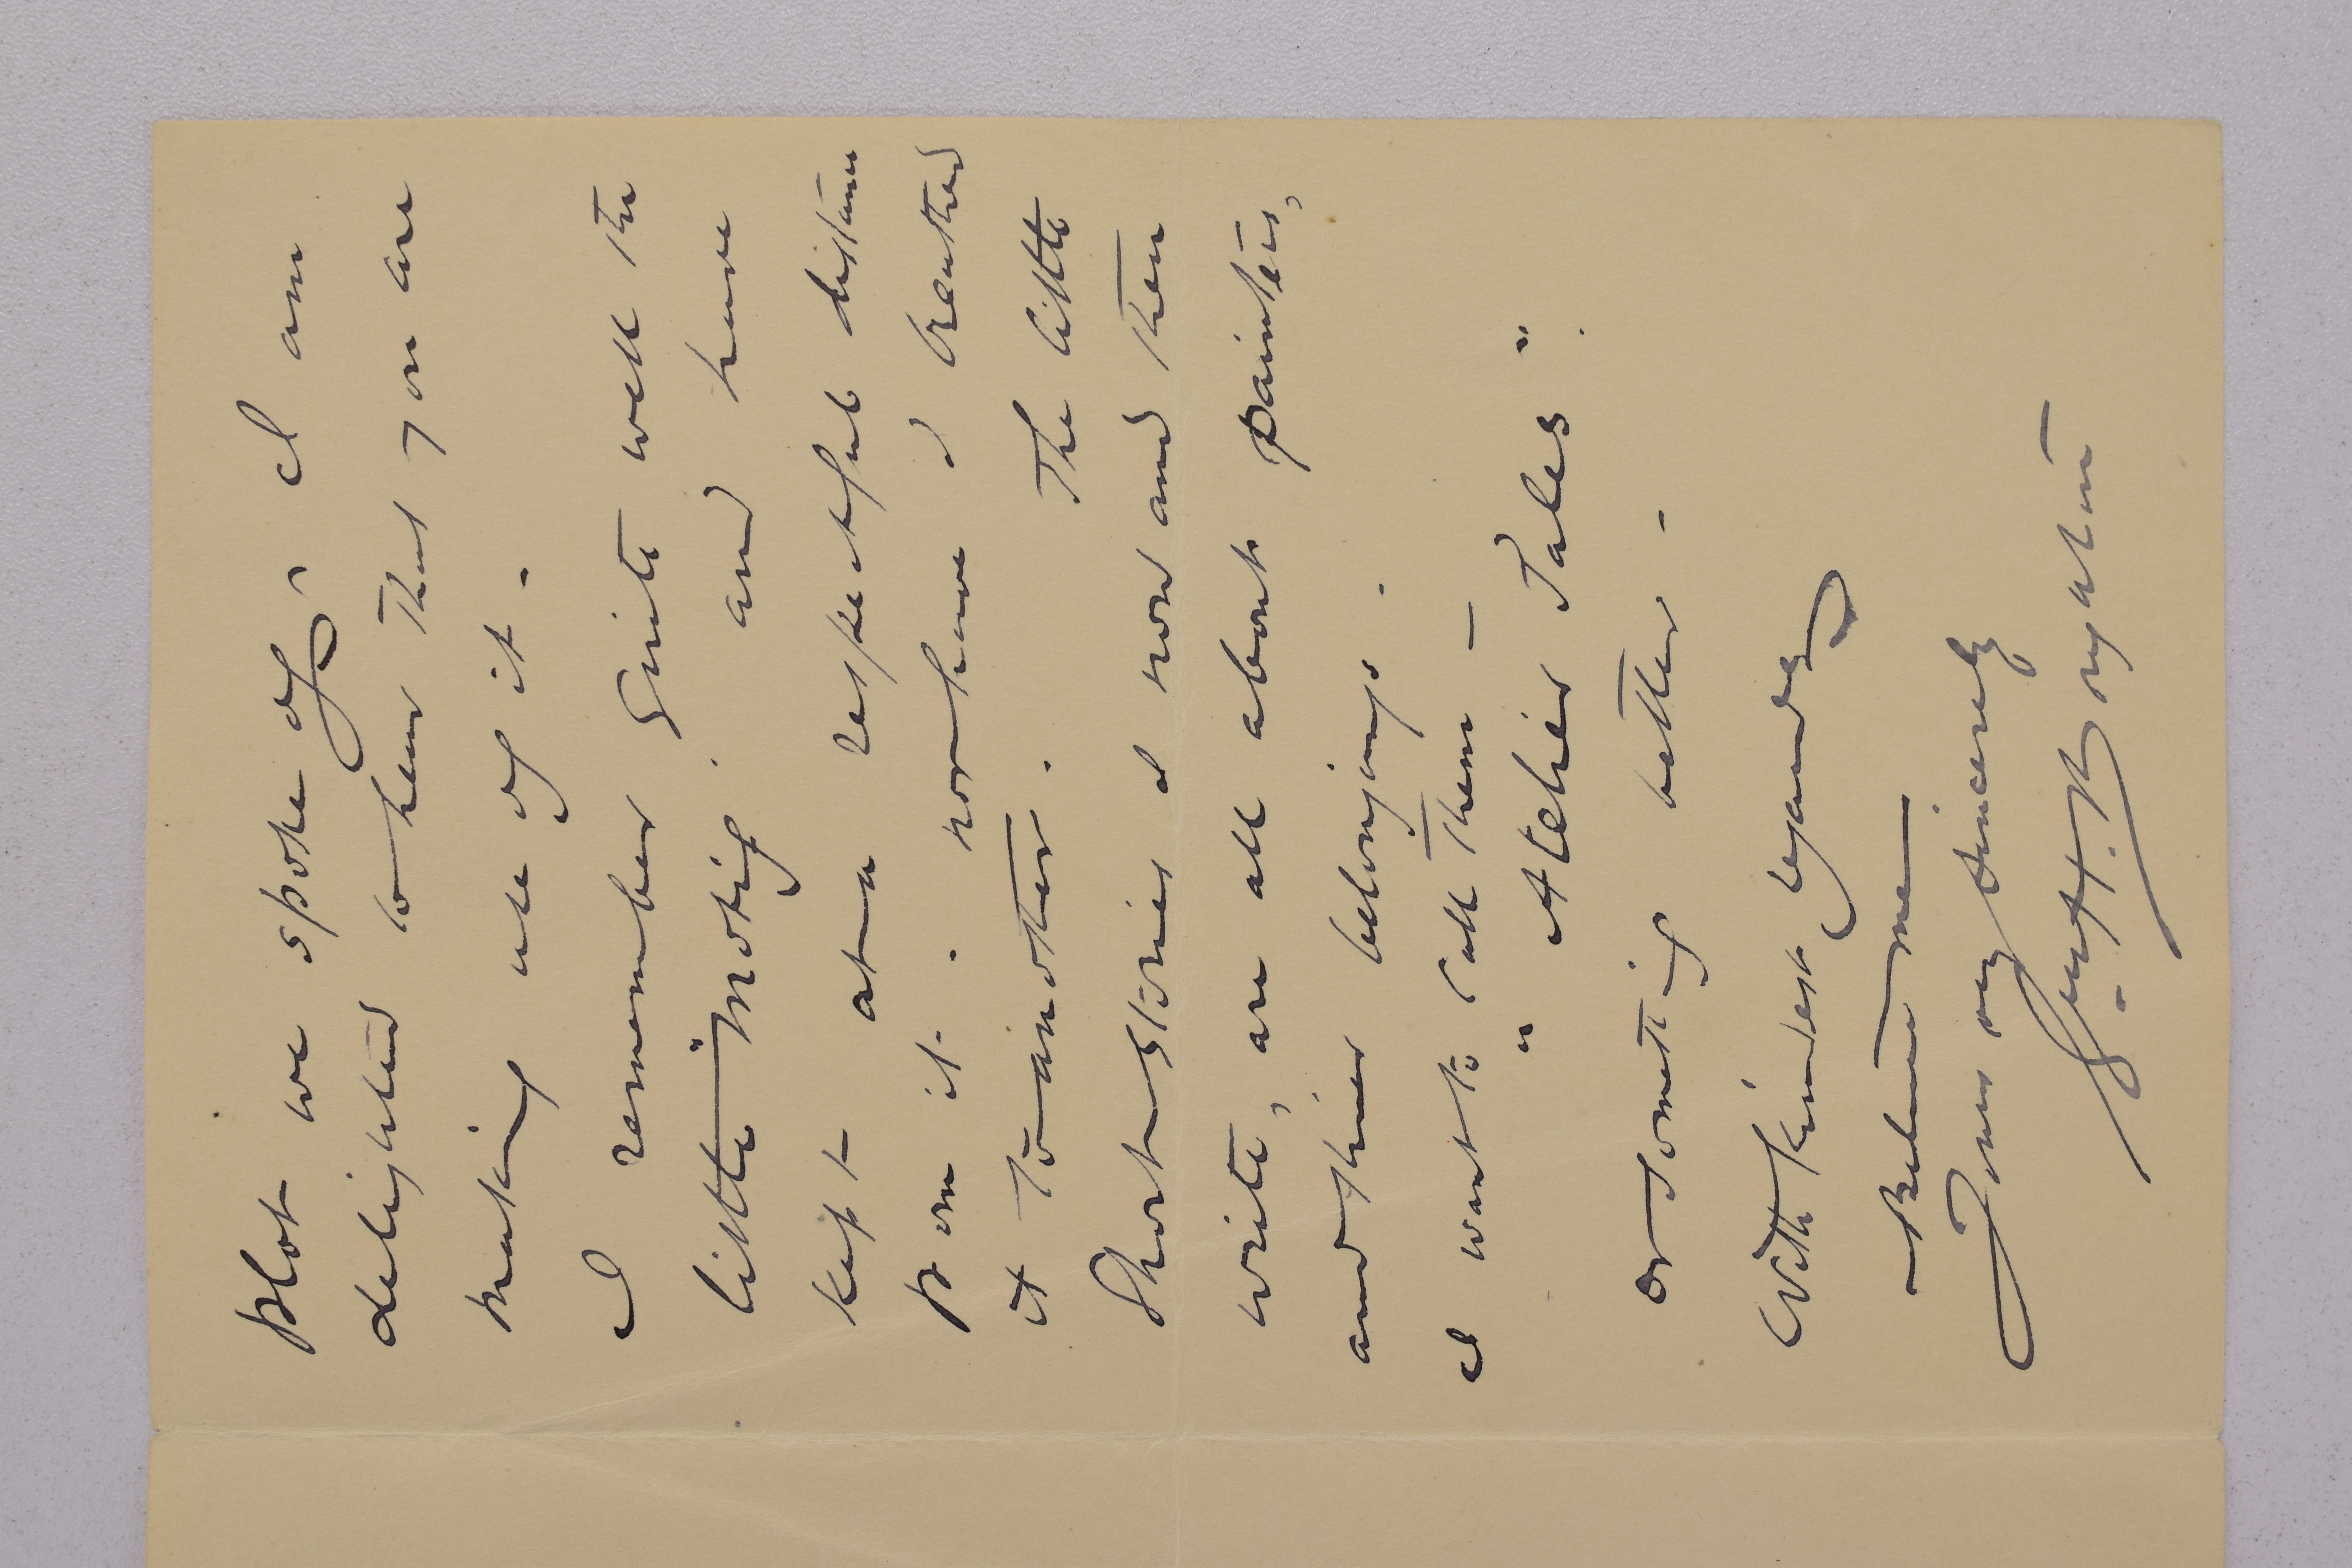 plot we spoke of, I am
delighted to hear that you are
making use of it -
I remember quite well the
little "motif" and have
kept at a respectful distance
from it. nor have I breathed
it to another. The little
Short stories I now and then
write, are all about painters,
and their belongings.
I want to call them -
" Atelier Tales ".
or something better -
With kindest regards
Believe me
Yours very sincerely